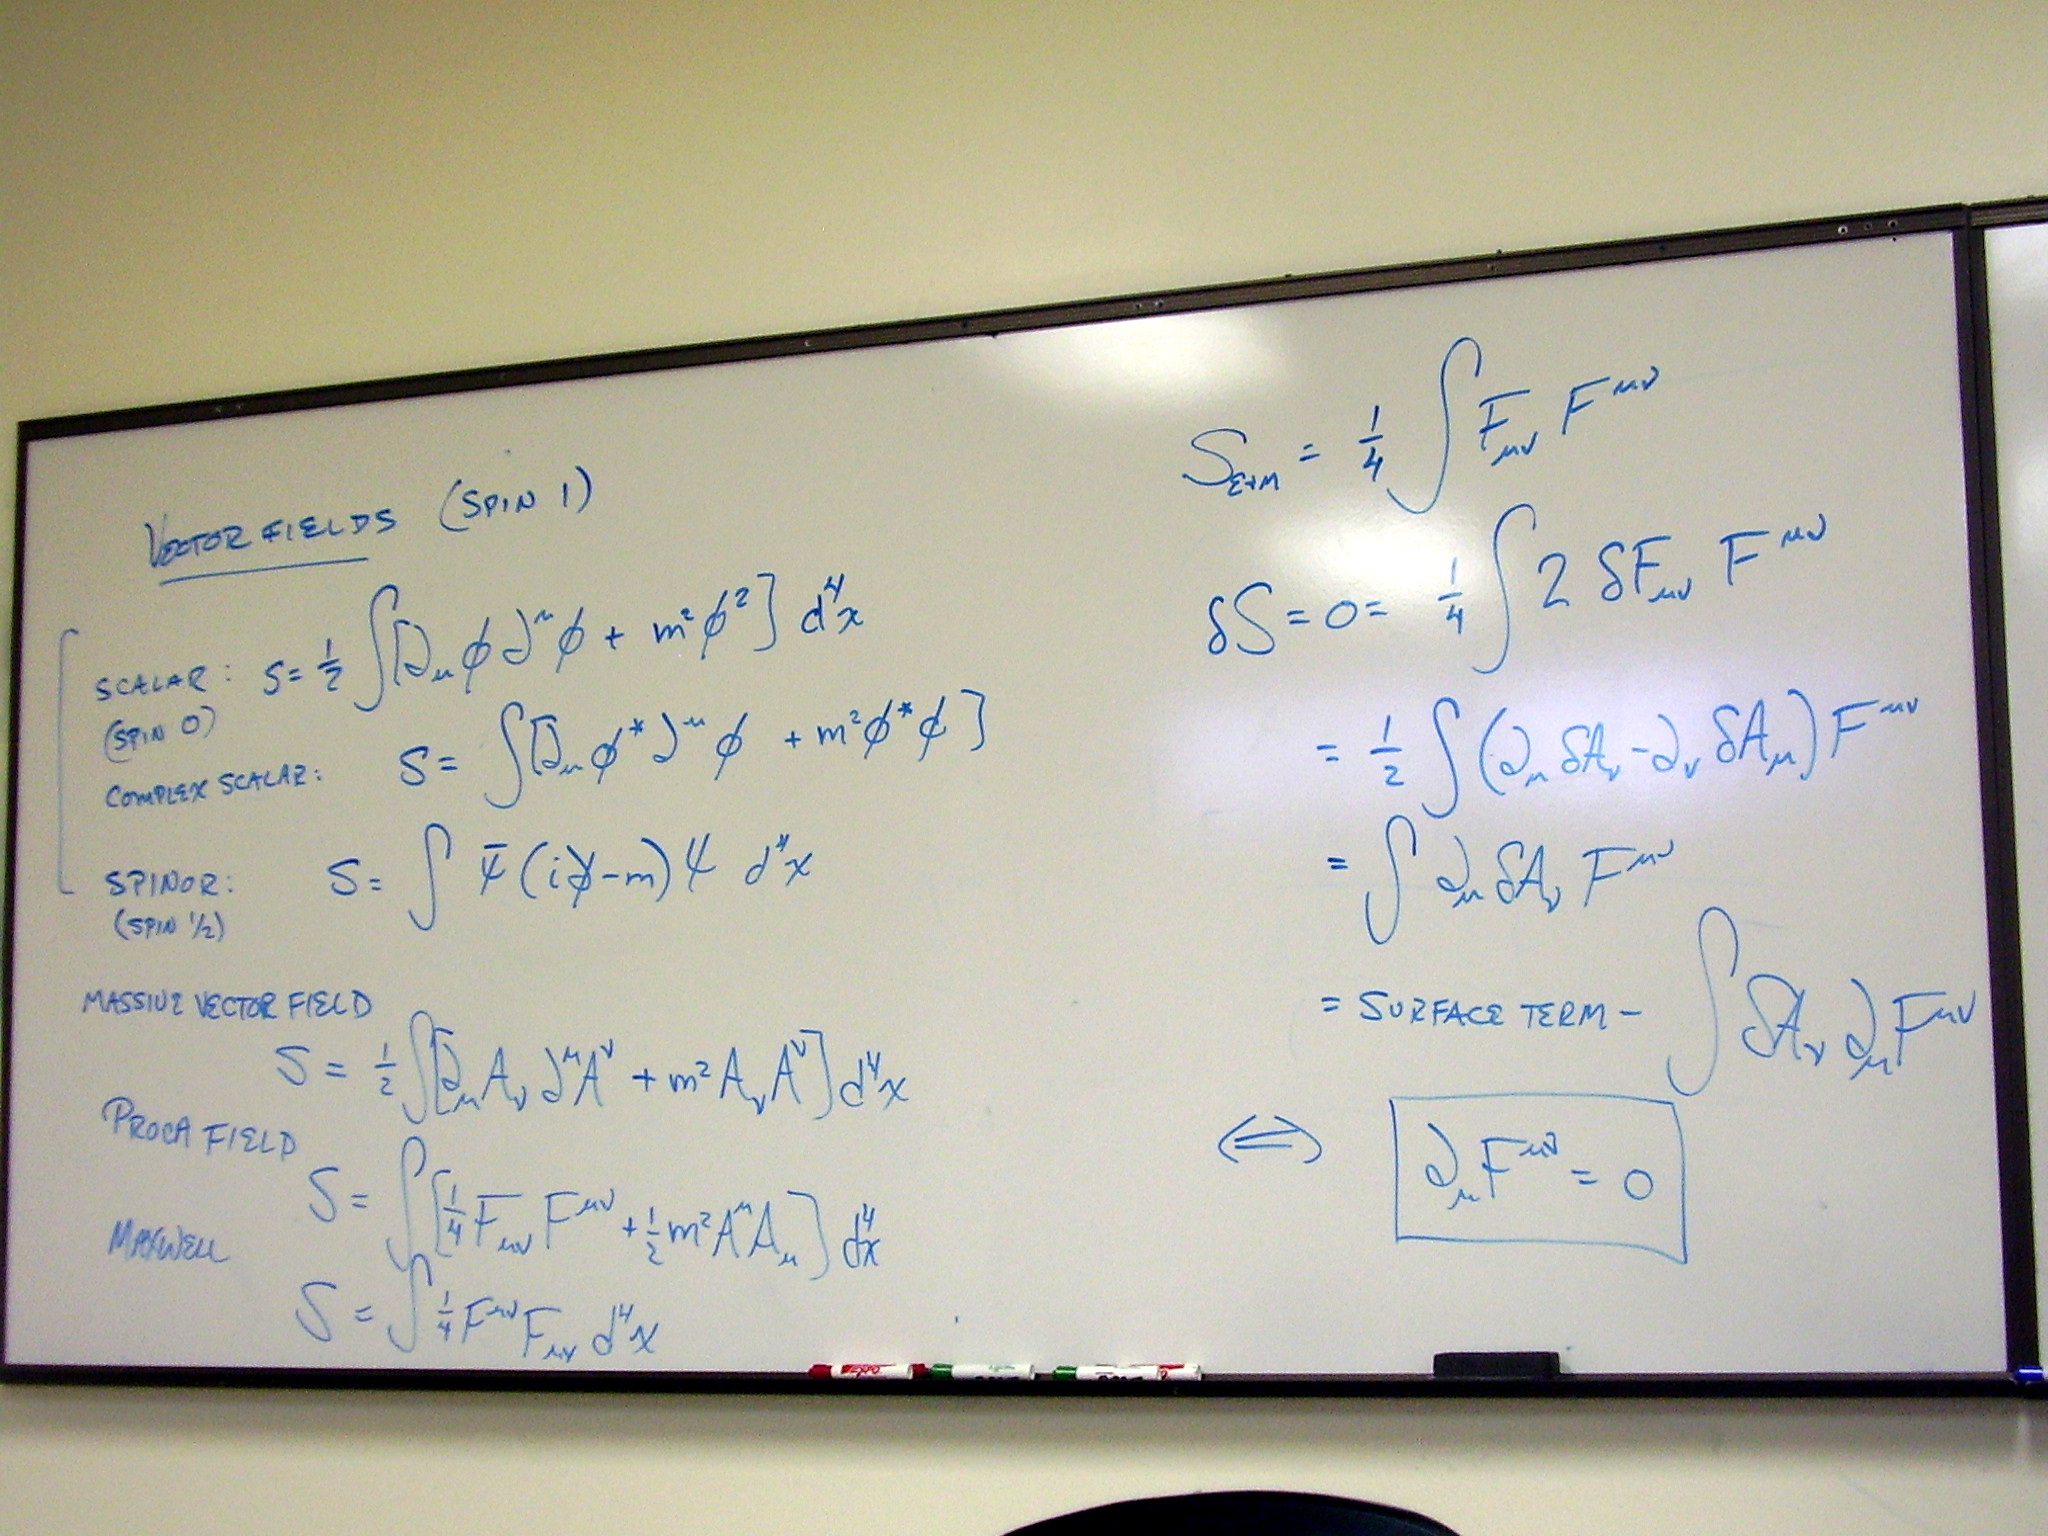 VECTOR FIELDS (SPIN 1)
SCALAR: S = 1/2 ∫[∂_μ ϕ ∂^μ ϕ + m² ϕ²] d⁴x
(SPIN 0)
COMPLEX SCALAR: S = ∫[∂_μ ϕ* ∂^μ ϕ + m² ϕ* ϕ]
SPINOR: S = ∫ ψ̄ (i∂̸ - m) ψ d⁴x
(SPIN 1/2)
MASSIVE VECTOR FIELD
S = 1/2 ∫[∂_μ A_ν ∂^μ A^ν + m² A_ν A^ν] d⁴x
PROCA FIELD
S = ∫[1/4 F_μν F^μν + 1/2 m² A^μ A_μ] d⁴x
MAXWELL
S = ∫ 1/4 F^μν F_μν d⁴x
S_E+M = 1/4 ∫ F_μν F^μν
δS = 0 = 1/4 ∫ 2 δF_μν F^μν
= 1/2 ∫ (∂_μ δA_ν - ∂_ν δA_μ) F^μν
= ∫ ∂_μ δA_ν F^μν
= SURFACE TERM - ∫ δA_ν ∂_μ F^μν
⟺ ∂_μ F^μν = 0
EXPO